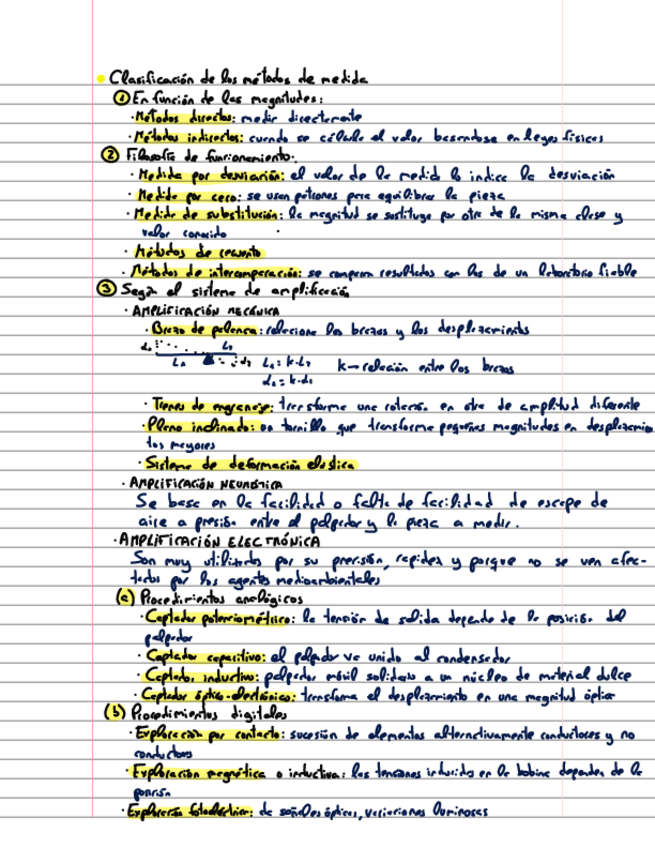 • Clasificación de los métodos de medida
① En función de las magnitudes:
· Métodos directos: medir directamente
· Métodos indirectos: cuando se cálcula el valor basandose en leyes físicas
② Filosofía de funcionamiento.
· Medida por desviación: el valor de la medida lo indica la desviación
· Medida por cero: se usan patrones para equilibrar la pieza
· Medida de substitución: la magnitud se sustituye por otra de la misma clase y
valor conocido
· Métodos de recuento
· Métodos de intercomparación: se comparan resultados con los de un laboratorio fiable
③ Según el sistema de amplificación
· AMPLIFICACIÓN MECÁNICA
· Brazo de palanca: relaciona los brazos y los desplazamientos
L₁ = k·L₂ k → relación entre los brazos
· Trenes de engranaje: transforma una rotación en otra de amplitud diferente
· Plano inclinado: un tornillo que transforma pequeñas magnitudes en desplazamien
tos mayores
· Sistema de deformación elástica
· AMPLIFICACIÓN NEUMÁTICA
Se basa en la facilidad o falta de facilidad de escape de
aire a presión entre el palpador y la pieza a medir.
· AMPLIFICACIÓN ELECTRÓNICA
Son muy utilizados por su precisión, rapidez y porque no se ven afec-
tados por los agentes medioambientales
(a) Procedimientos analógicos
· Captador potenciométrico: la tensión de salida depende de la posición del
palpador
· Captador capacitivo: el palpador va unido al condensador
· Captador inductivo: palpador móvil solidario a un núcleo de material dulce
· Captador óptico-electrónico: transforma el desplazamiento en una magnitud óptica
(b) Procedimientos digitales
· Exploración por contacto: sucesión de elementos alternativamente conductores y no
conductores
· Exploración magnética o inductiva: las tensiones inducidas en la bobina dependen de la
posición
· Exploración fotoeléctrica: da señales ópticas, variaciones luminosas